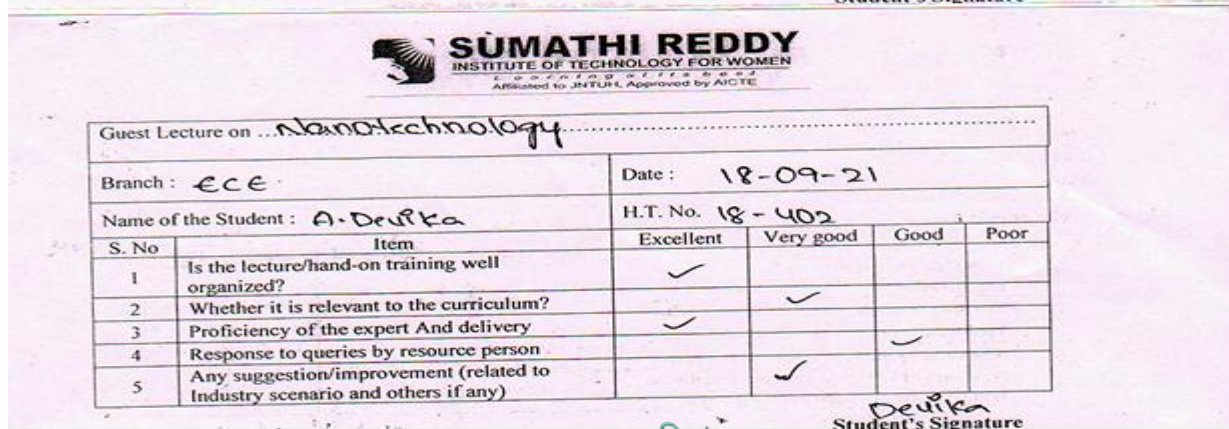 Student's Signature
SUMATHI REDDY
INSTITUTE OF TECHNOLOGY FOR WOMEN
Affiliated to JNTUH, Approved by AICTE
Guest Lecture on .. Nanotechnology
Branch : ECE
Date : 18-09-21
Name of the Student : A. Devika
H.T. No. 18 - 402
S. No Item Excellent Very good Good Poor
1 Is the lecture/hand-on training well
organized? ✓
2 Whether it is relevant to the curriculum? ✓
3 Proficiency of the expert And delivery ✓
4 Response to queries by resource person ✓
5 Any suggestion/improvement (related to
Industry scenario and others if any) ✓
Devika
Student's Signature